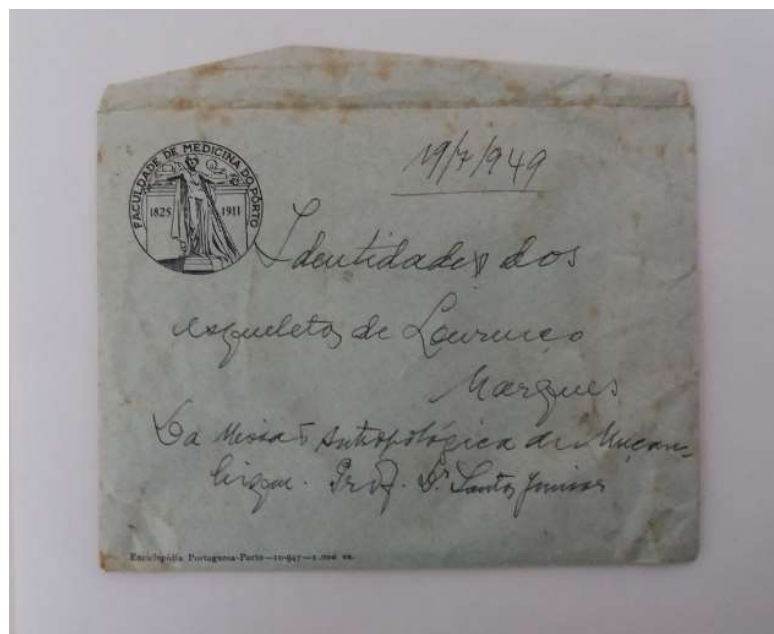 FACULDADE DE MEDICINA DO PÔRTO
1825 1911
19/7/949
Identidades dos
esqueletos de Lourenço
Marques
Da Missão Antropológica de Moçam-
bique. Prof. Dr Santos Junior
Enciclopédia Portuguesa-Porto—10-947—1.000 ex.